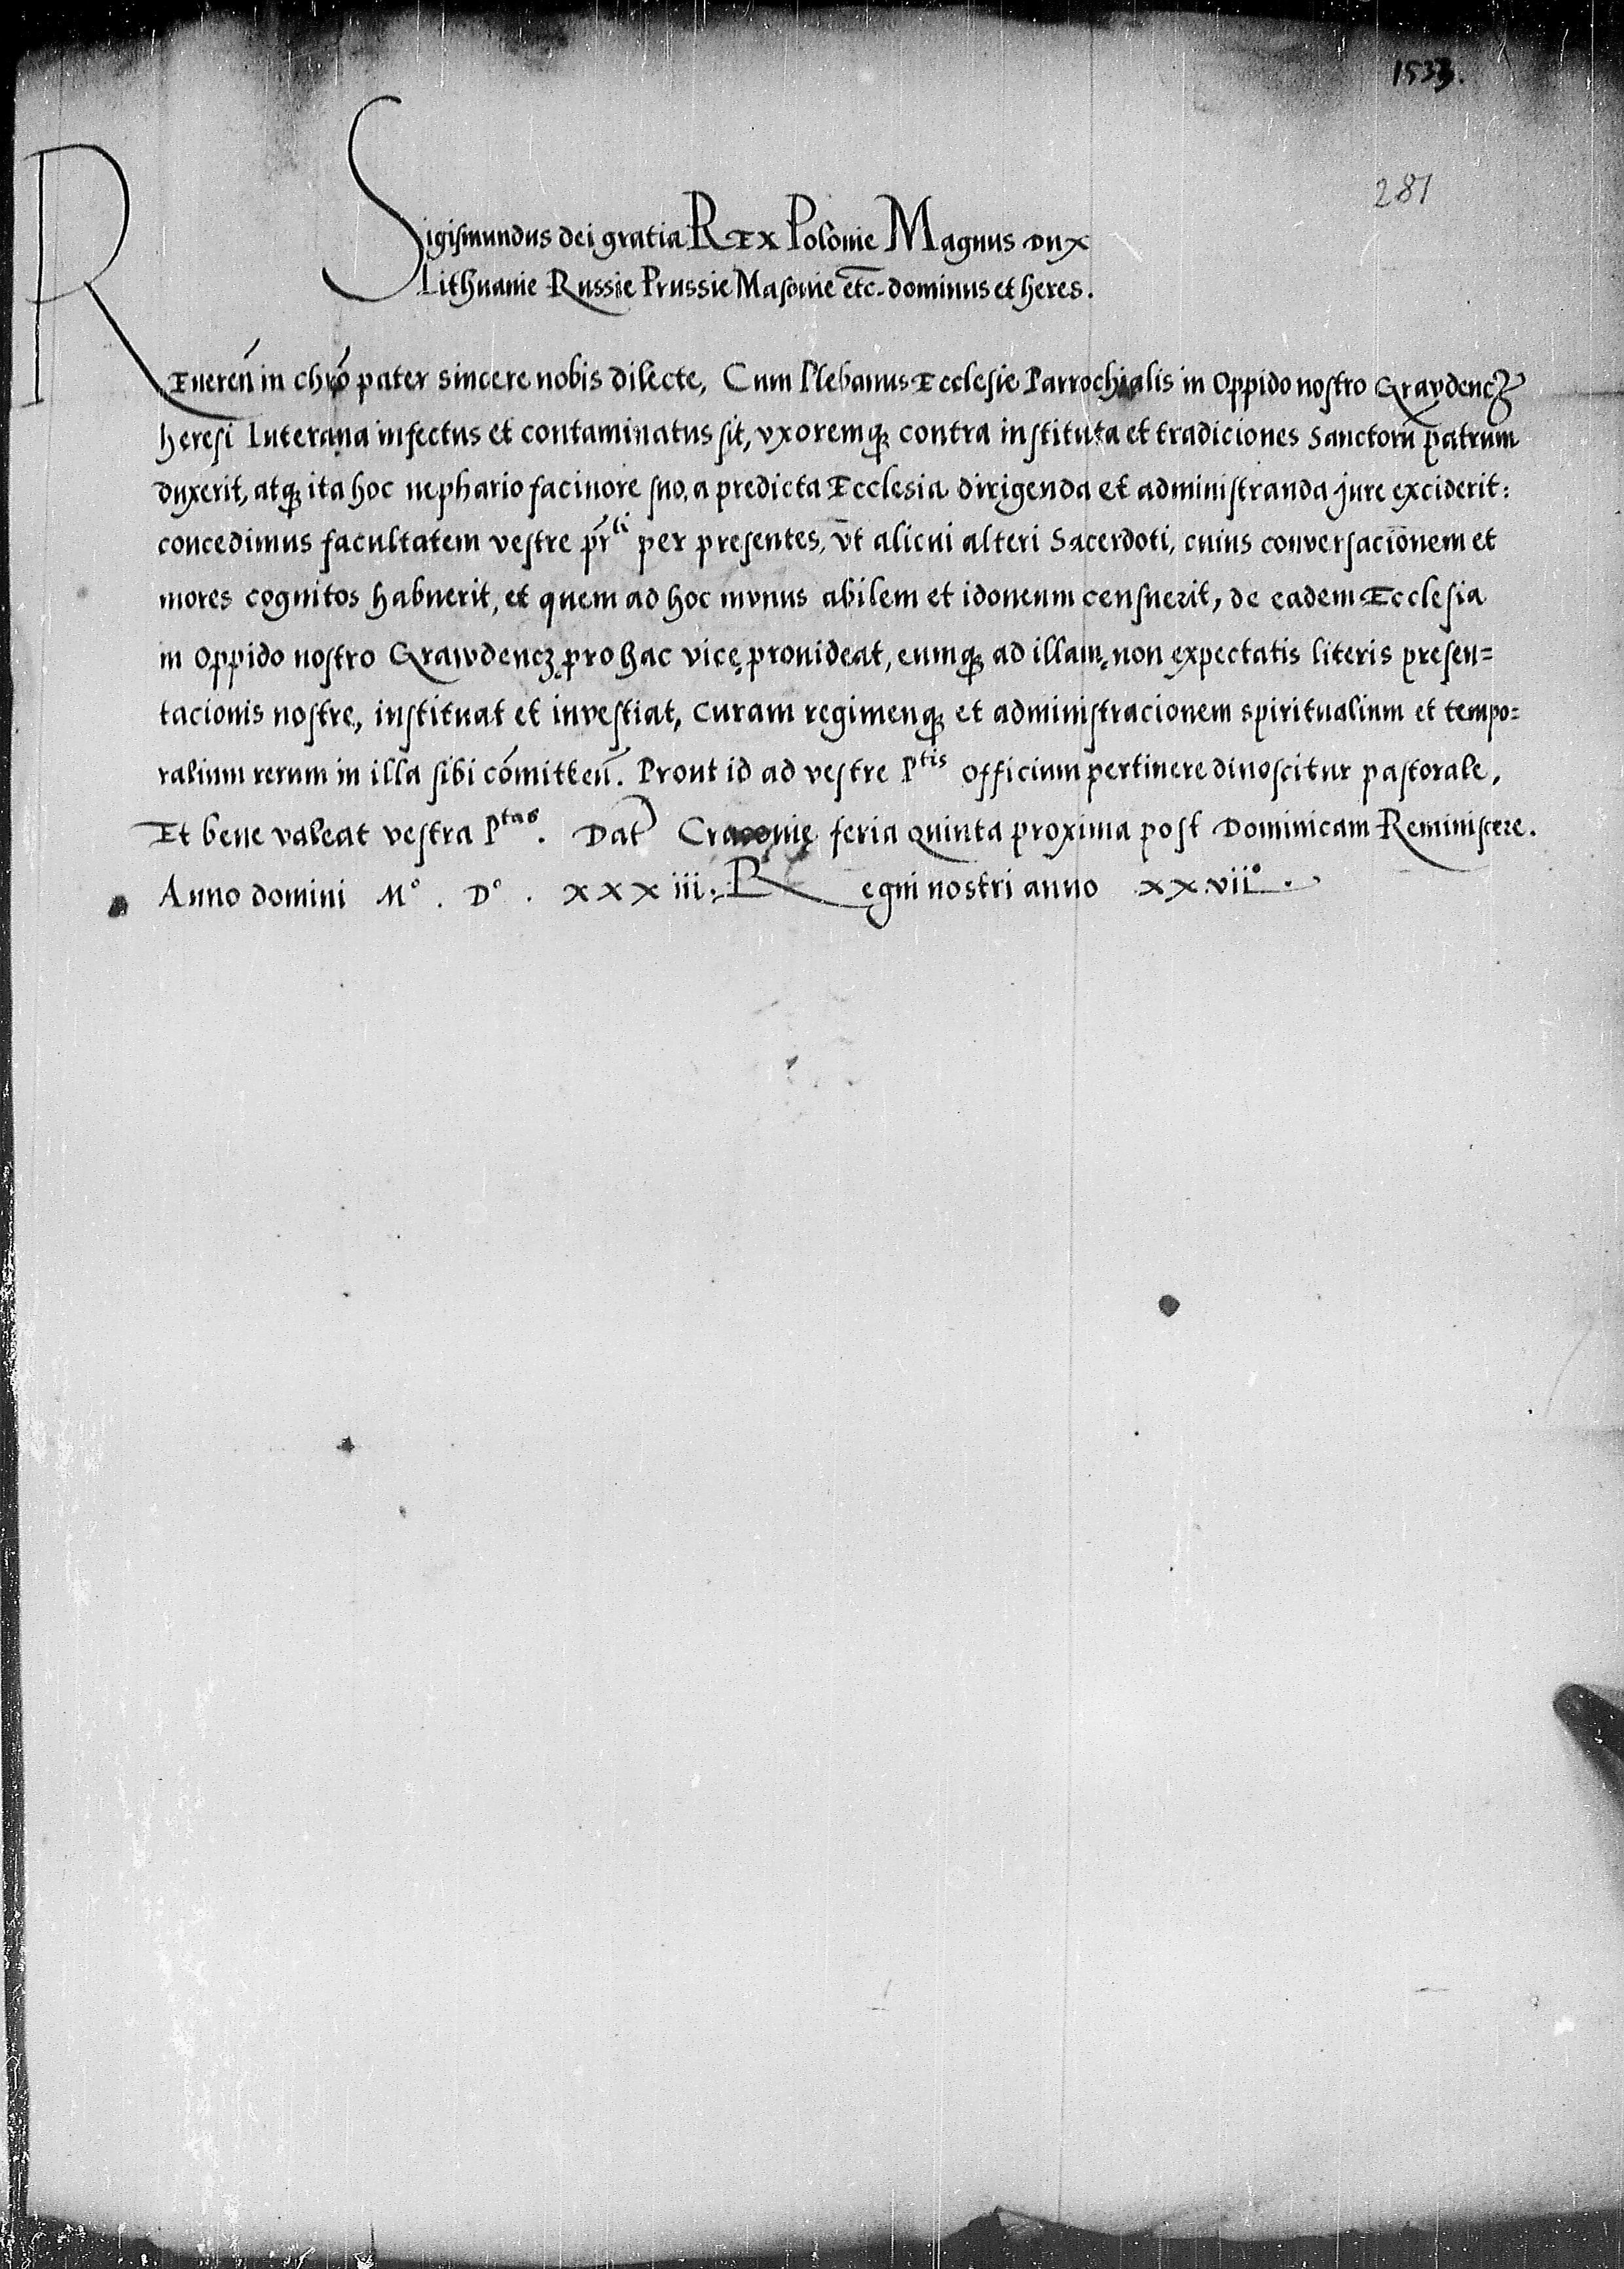 1533.
281
Sigismundus dei gratia Rex Polonie Magnus Dux
Lithuanie Russie Prussie Masovie etc. dominus et heres.
Reueren̄ in chrō pater sincere nobis dilecte, Cum Plebanus Ecclesie Parrochialis in Oppido nostro Gravdencz
heresi luterana infectus et contaminatus sit, vxoremqꝫ contra instituta et tradiciones Sanctorū patrum
duxerit, atqꝫ ita hoc nephario facinore suo, a predicta Ecclesia dirigenda et administranda jure exciderit:
concedimus facultatem vestre pr̄ti per presentes, vt alicui alteri Sacerdoti, cuius conversacionem et
mores cognitos habuerit, et quem ad hoc munus abilem et idoneum censuerit, de eadem Ecclesia
in Oppido nostro Grawdencz pro hac vice prouideat, eumqꝫ ad illam, non expectatis literis presen=
tacionis nostre, instituat et investiat, Curam regimenqꝫ et administracionem spiritualium et tempo=
ralium rerum in illa sibi cōmitten̄. Prout id ad vestre Ptis officium pertinere dinoscitur pastorale,
Et bene valeat vestra Ptas. Dat Cracovię feria quinta proxima post Dominicam Reminiscere.
Anno domini Mº. Dº. xxxiii. Regni nostri anno xxviiº.